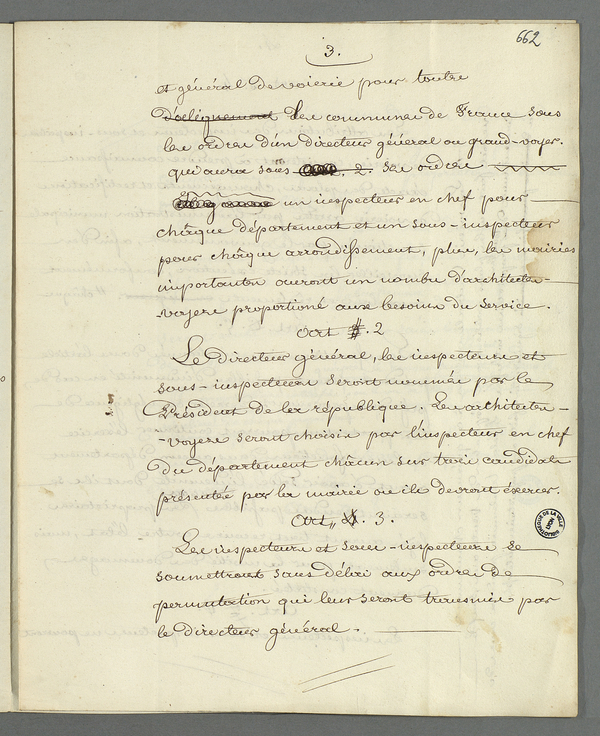 662
3.
et général de voierie pour toutes
les communes de France sous
les ordres d'un directeur général ou grand-voyer.
qui aura sous ses ordres
un inspecteur en chef pour
châque département et un sous-inspecteur
pour châque arrondissement, plus, les mairies
importantes auront un nombre d'architectes-
-voyers proportioné aux besoins du service.
art 2
Le directeur général, les inspecteurs et
sous-inspecteurs seront nommés par le
Président de la république. Les architectes-
-voyers seront choisis par l'inspecteur en chef
du département châcun sur trois candidats
présentés par la mairie où ils devront éxercer.
art, 3.
Les inspecteurs et sous-inspecteurs se
soumettront sans délai aux ordres de
permutation qui leur seront transmis par
le directeur général.
BIBLIOTHEQUE DE LA VILLE
LYON